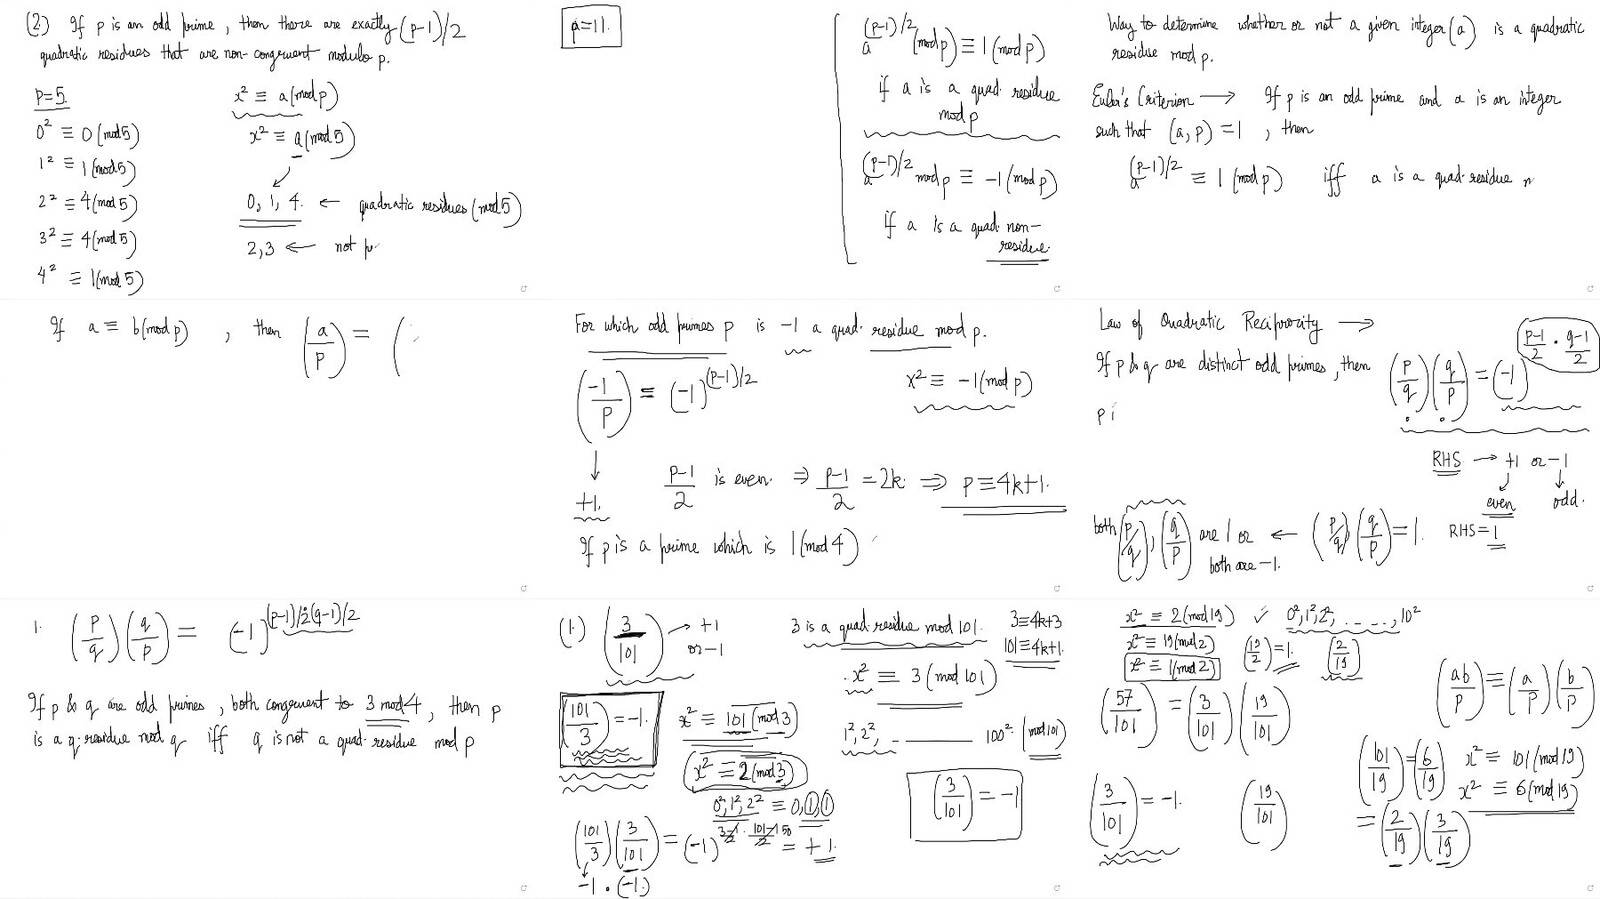 (2.) If p is an odd prime, then there are exactly (p-1)/2
quadratic residues that are non-congruent modulo p.
P=5.
0² ≡ 0(mod5)
1² ≡ 1(mod5)
2² ≡ 4(mod5)
3² ≡ 4(mod5)
4² ≡ 1(mod5)
x² ≡ a(mod p)
x² ≡ a(mod5)
0, 1, 4. ← quadratic residues (mod5)
2,3 ← not
p=11.
a^(p-1)/2 (mod p) ≡ 1(mod p)
if a is a quad. residue
mod p
a^(p-1)/2 mod p ≡ -1(mod p)
if a is a quad. non-
residue.
Way to determine whether or not a given integer(a) is a quadratic
residue mod p.
Euler's Criterion → If p is an odd prime and a is an integer
such that (a,p)=1, then
a^(p-1)/2 ≡ 1(mod p) iff a is a quad. residue
If a ≡ b(mod p), then (a/p) = (
For which odd primes p is -1 a quad. residue mod p.
(-1/p) = (-1)^(p-1)/2
x² ≡ -1(mod p)
+1.
p-1/2 is even. ⇒ p-1/2 = 2k. ⇒ p≡4k+1.
If p is a prime which is 1(mod 4)
Law of Quadratic Reciprocity →
If p & q are distinct odd primes, then (p/q)(q/p) = (-1)^(p-1/2 · q-1/2)
p i
RHS → +1 or -1
even odd.
both (p/q), (q/p) are 1 or ← (p/q)(q/p) = 1. RHS=1
both are -1.
1. (p/q)(q/p) = (-1)^(p-1)/2(q-1)/2
If p & q are odd primes, both congruent to 3 mod 4, then p
is a q. residue mod q iff q is not a quad. residue mod p
(1.) (3/101) → +1
or -1
3 is a quad. residue mod 101.
3≡4k+3
101≡4k+1.
x² ≡ 3(mod 101)
(101/3) = -1.
x² ≡ 101(mod 3)
x² ≡ 2(mod 3)
0², 1², 2² ≡ 0,1,1
1², 2², ——— 100² (mod 101)
(3/101) = -1
(101/3)(3/101) = (-1)^(3-1/2 · 101-1/2 50) = +1.
-1 · (-1)
x² ≡ 2(mod 19) ✓ 0², 1², 2², ....., 10²
x² ≡ 19(mod 2) (19/2) = 1. (2/19)
x² ≡ 1(mod 2)
(57/101) = (3/101)(19/101)
(ab/p) ≡ (a/p)(b/p)
(3/101) = -1. (19/101)
(101/19) = (6/19) x² ≡ 101(mod 19)
x² ≡ 6(mod 19)
= (2/19)(3/19)